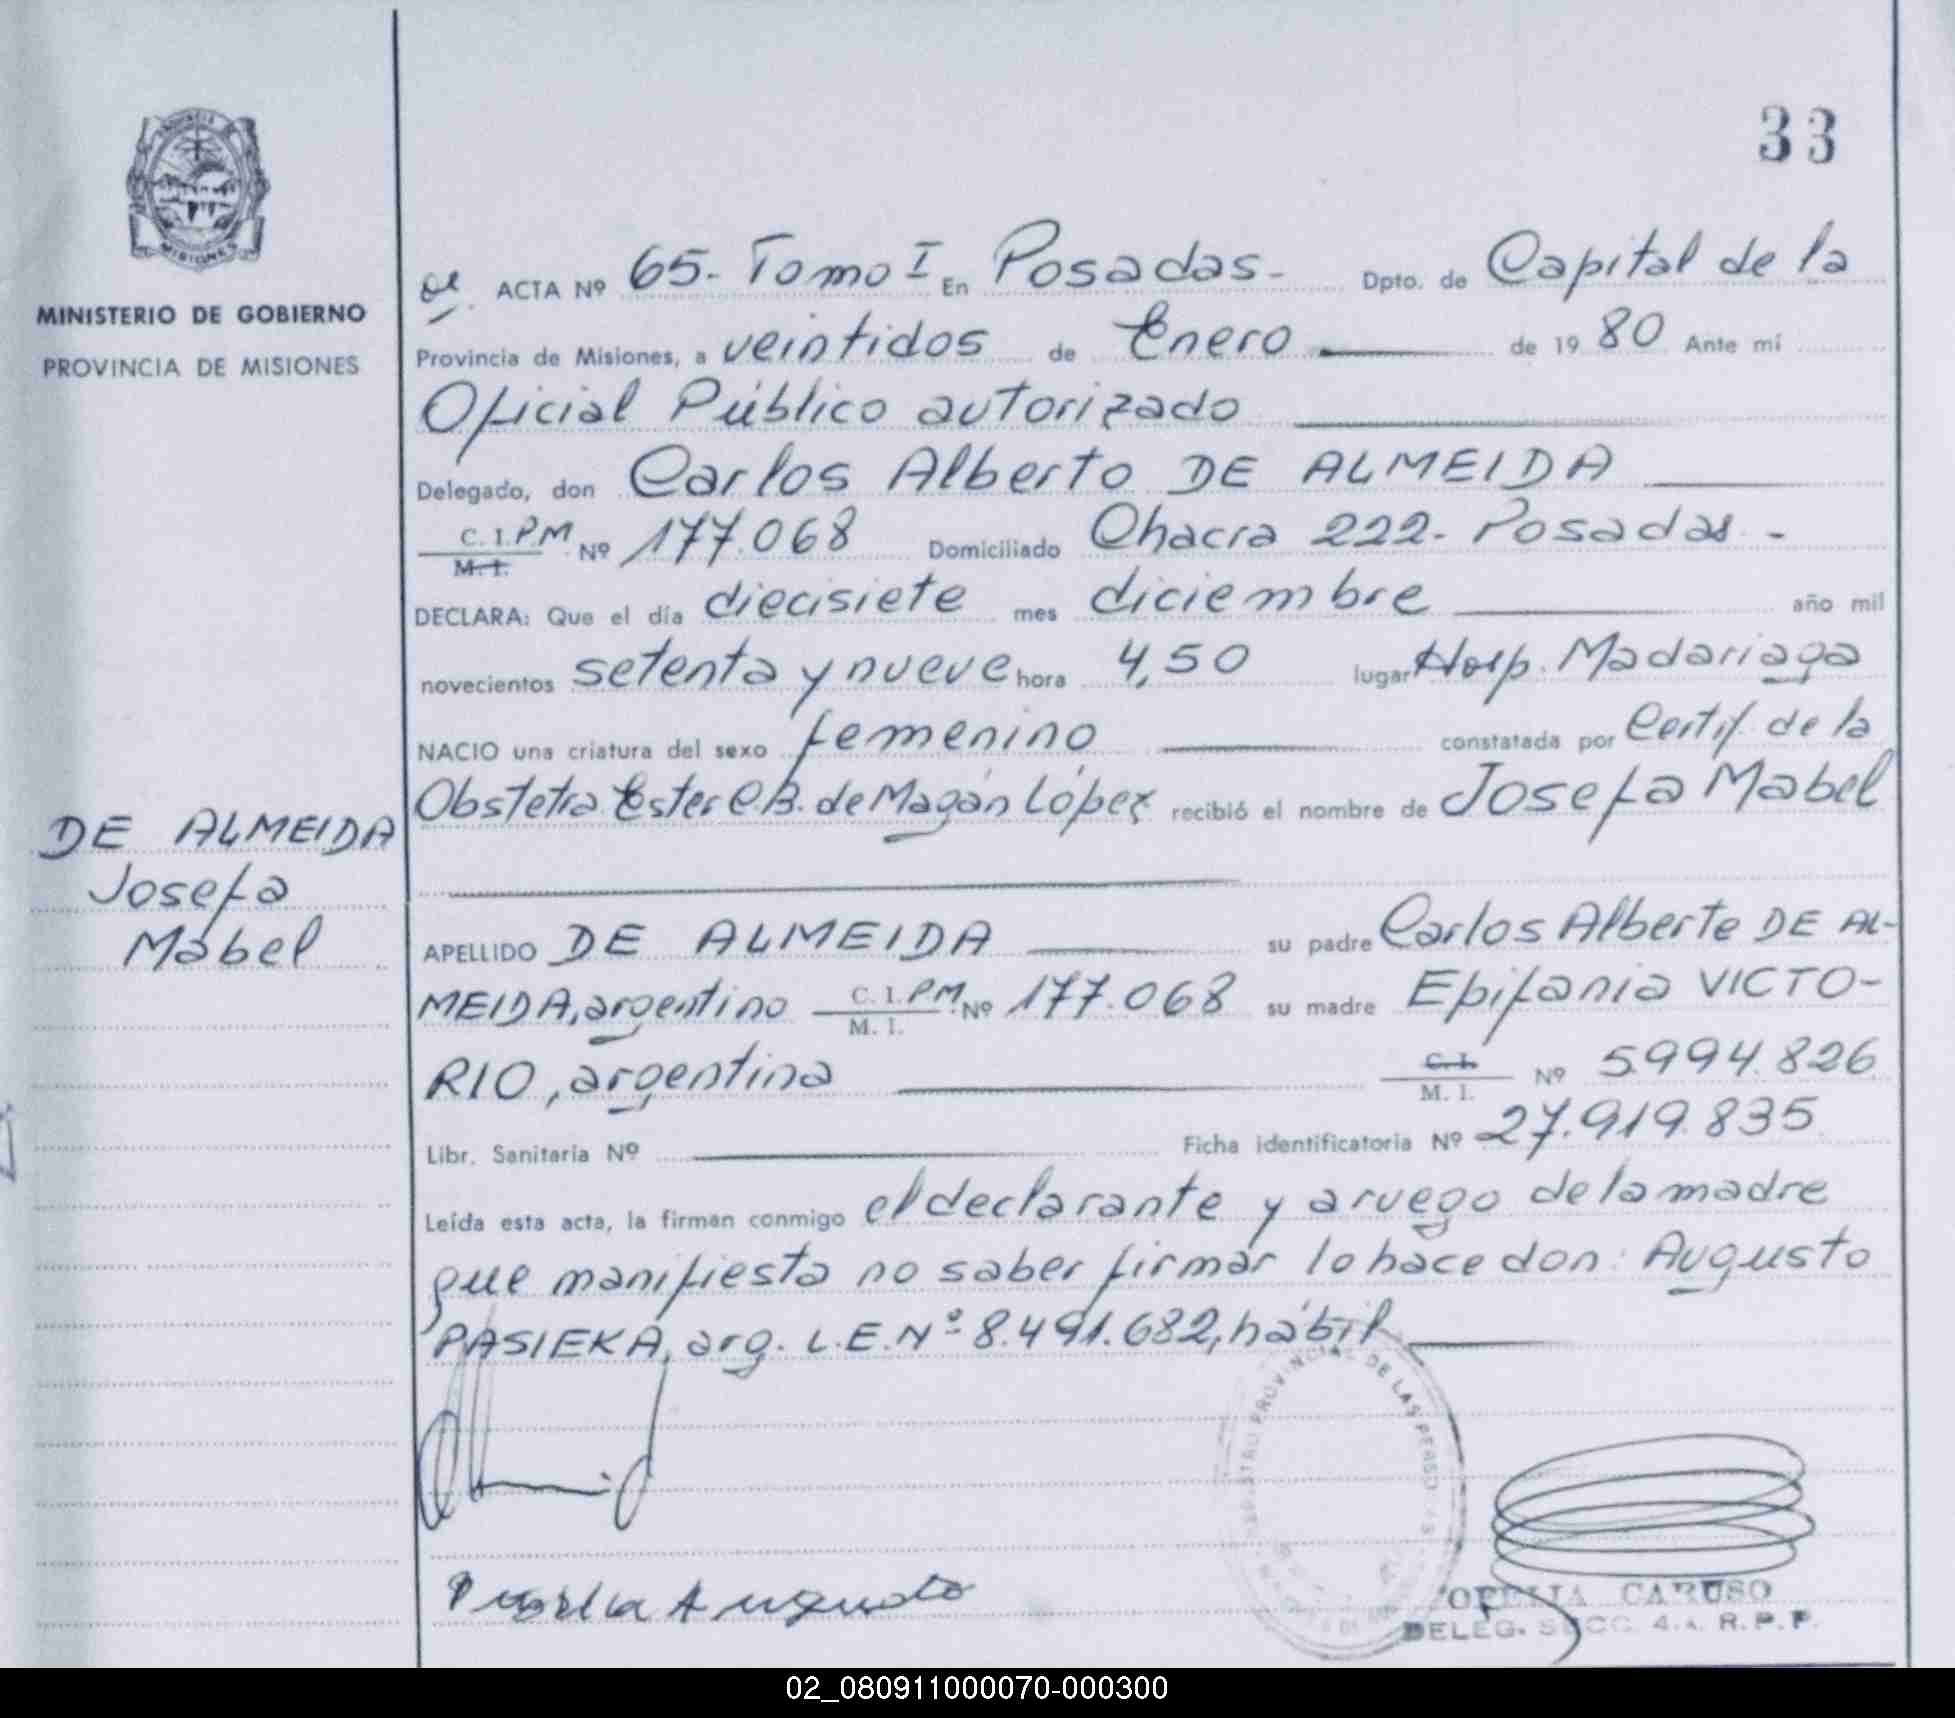 33
MINISTERIO DE GOBIERNO
PROVINCIA DE MISIONES
ACTA Nº 65.- Tomo I En Posadas.- Dpto. de Capital de la
Provincia de Misiones, a veintidos de Enero de 1980 Ante mí
Oficial Público autorizado
Delegado, don Carlos Alberto DE ALMEIDA
C. I. P.M. M. I. Nº 177.068 Domiciliado Chacra 222.- Posadas -
DECLARA: Que el día diecisiete mes diciembre año mil
novecientos setenta y nueve hora 4,50 lugar Hosp. Madariaga
NACIO una criatura del sexo femenino constatada por Certif. de la
Obstetra Ester C.B. de Magán López recibió el nombre de Josefa Mabel
DE ALMEIDA
Josefa
Mabel
APELLIDO DE ALMEIDA su padre Carlos Alberto DE AL-
MEIDA, argentino C. I. P.M. M. I. Nº 177.068 su madre Epifania VICTO-
RIO, argentina C. I. M. I. Nº 5.994.826
Libr. Sanitaria Nº Ficha identificatoria Nº 27.919.835
Leída esta acta, la firman conmigo el declarante y a ruego de la madre
que manifiesta no saber firmar lo hace don: Augusto
PASIEKA, arg. L.E. Nº 8.491.682, hábil
PROVINCIAL DE LAS PERSO
Augusto
OFELIA CARUSO
DELEG. SECC. 4.a. R.P.P.
02_080911000070-000300